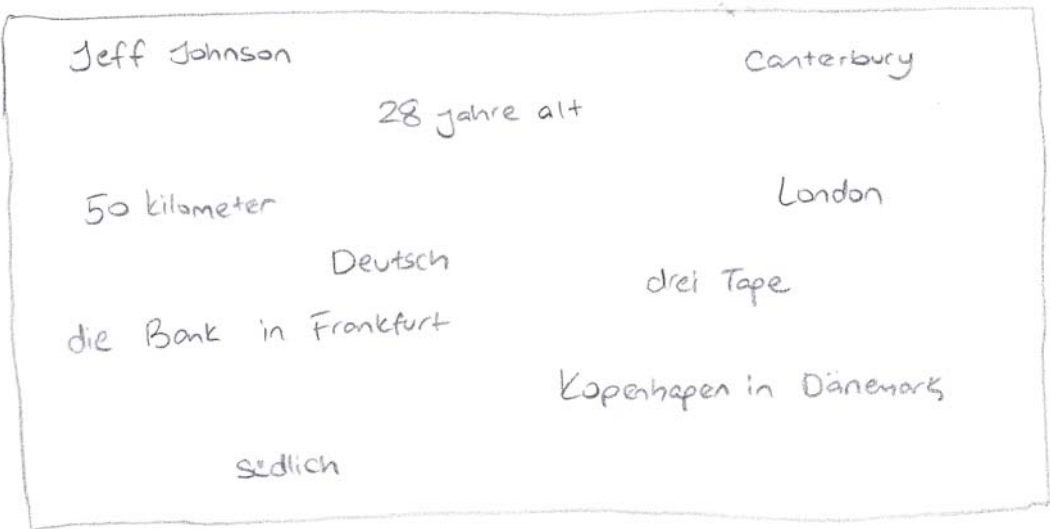 Jeff Johnson
Canterbury
28 jahre alt
50 kilometer
London
Deutsch
drei Tage
die Bank in Frankfurt
Kopenhagen in Dänemark
südlich